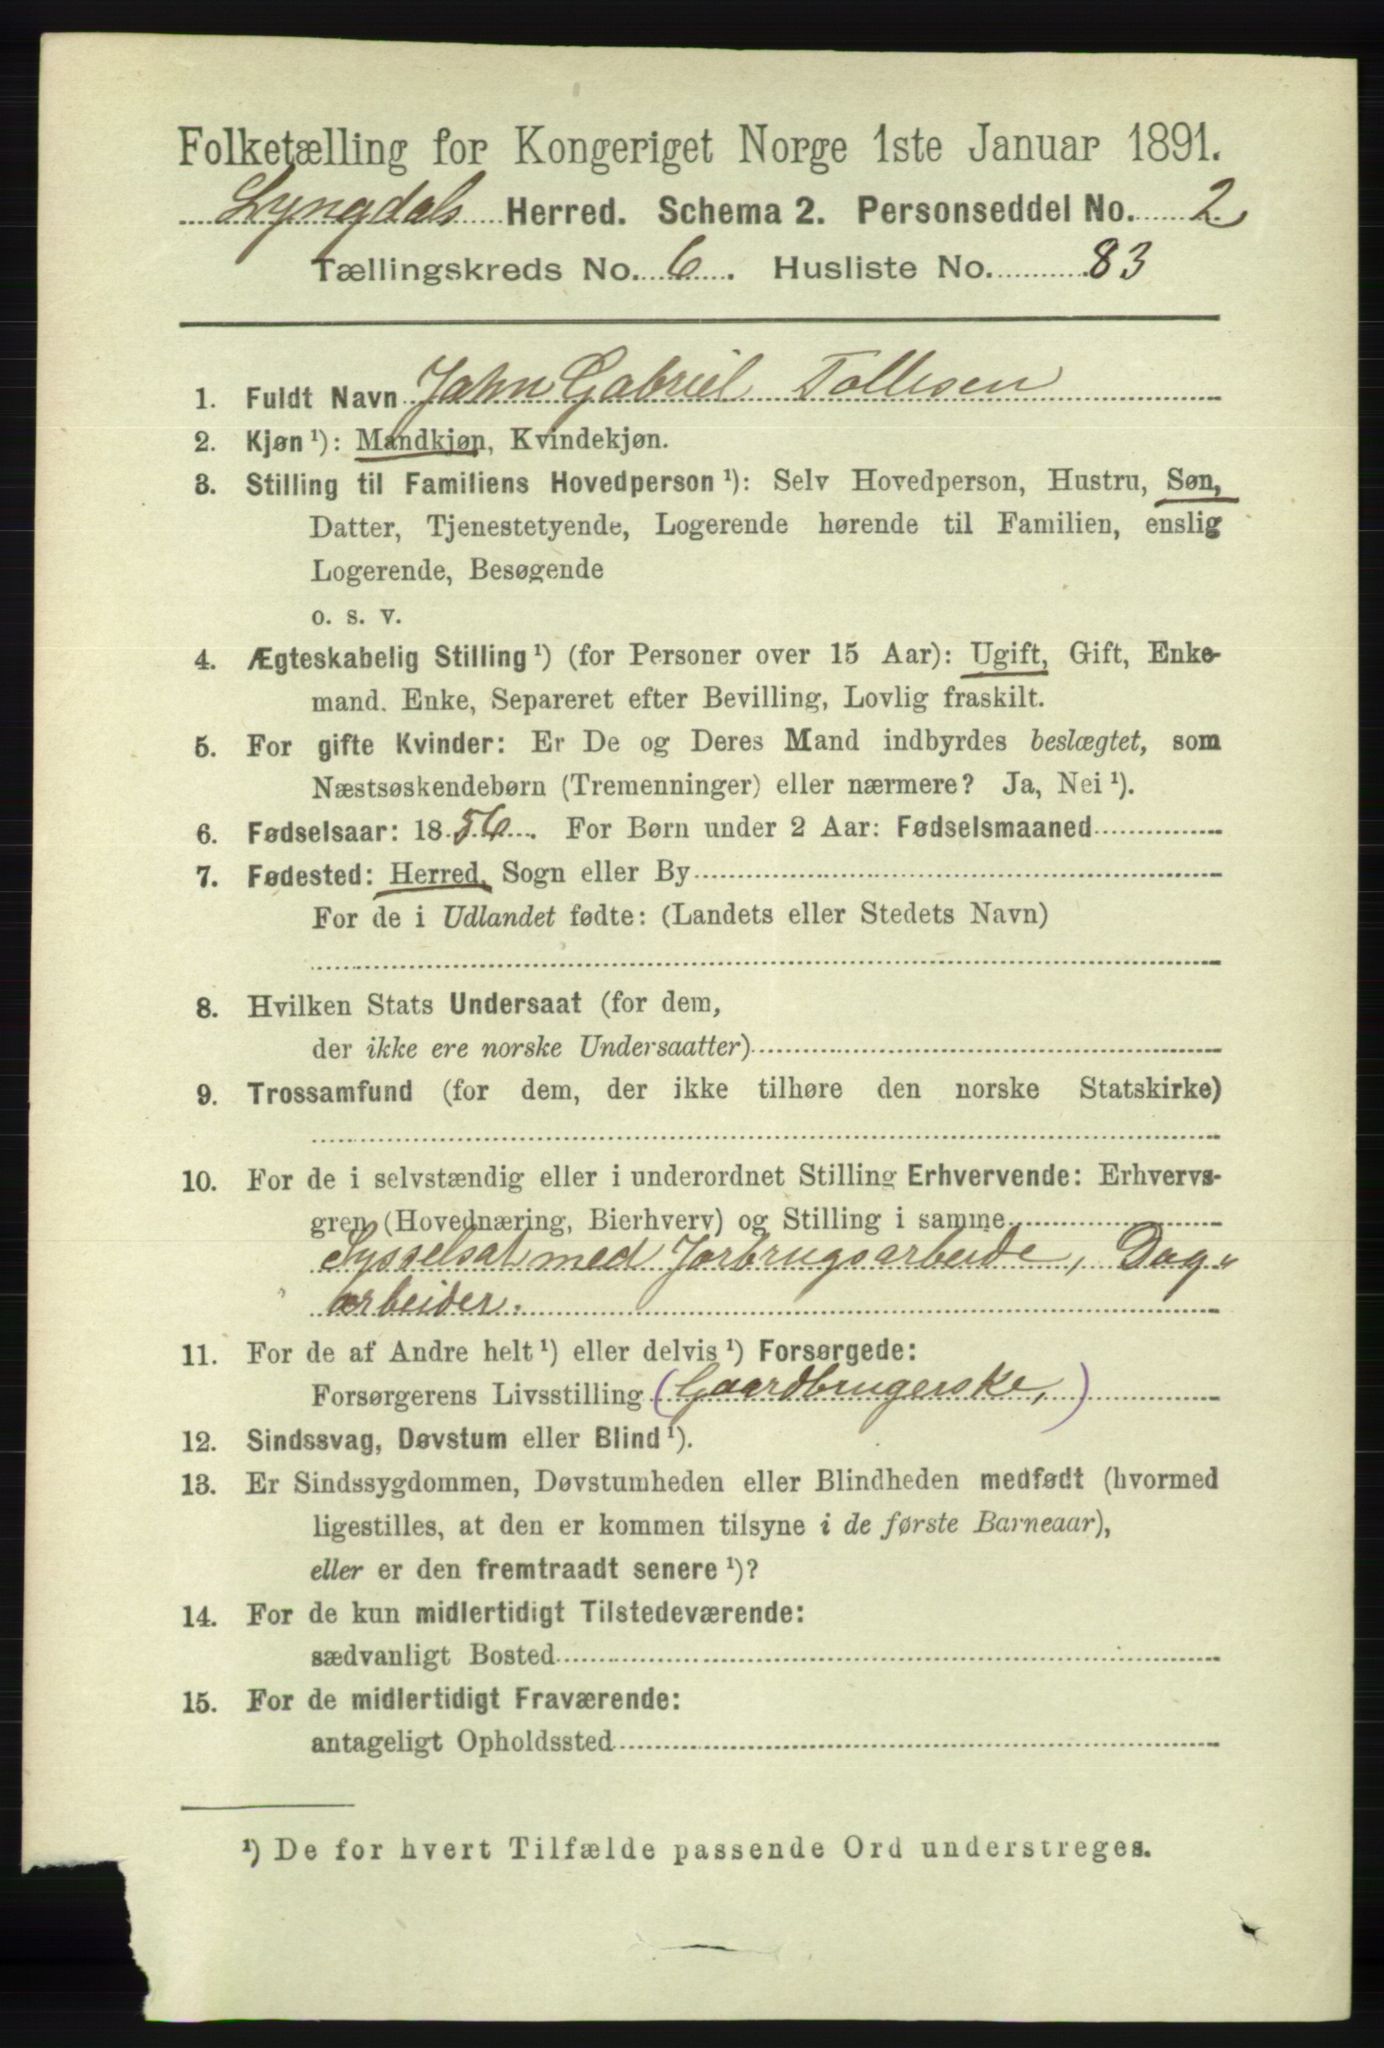 Folketælling for Kongeriget Norge 1ste Januar 1891.
Lyngdals Herred. Schema 2. Personseddel No. 2
Tællingskreds No. 6. Husliste No. 83
1. Fuldt Navn John Gabriel Tollesen
2. Kjøn ¹): Mandkjøn, Kvindekjøn.
3. Stilling til Familiens Hovedperson ¹): Selv Hovedperson, Hustru, Søn,
Datter, Tjenestetyende, Logerende hørende til Familien, enslig
Logerende, Besøgende
o. s. v.
4. Ægteskabelig Stilling ¹) (for Personer over 15 Aar): Ugift, Gift, Enke-
mand. Enke, Separeret efter Bevilling, Lovlig fraskilt.
5. For gifte Kvinder: Er De og Deres Mand indbyrdes beslægtet, som
Næstsøskendebørn (Tremenninger) eller nærmere? Ja, Nei ¹).
6. Fødselsaar: 1856. For Børn under 2 Aar: Fødselsmaaned
7. Fødested: Herred, Sogn eller By
For de i Udlandet fødte: (Landets eller Stedets Navn)
8. Hvilken Stats Undersaat (for dem,
der ikke ere norske Undersaatter)
9. Trossamfund (for dem, der ikke tilhøre den norske Statskirke)
10. For de i selvstændig eller i underordnet Stilling Erhvervende: Erhvervs-
gren (Hovednæring, Bierhverv) og Stilling i samme
Sysselsat med Jorbrugsarbeide, Dag-
arbeider.
11. For de af Andre helt ¹) eller delvis ¹) Forsørgede:
Forsørgerens Livsstilling (Gaardbrugerske,)
12. Sindssvag, Døvstum eller Blind ¹).
13. Er Sindssygdommen, Døvstumheden eller Blindheden medfødt (hvormed
ligestilles, at den er kommen tilsyne i de første Barneaar),
eller er den fremtraadt senere ¹)?
14. For de kun midlertidigt Tilstedeværende:
sædvanligt Bosted
15. For de midlertidigt Fraværende:
antageligt Opholdssted
¹) De for hvert Tilfælde passende Ord understreges.